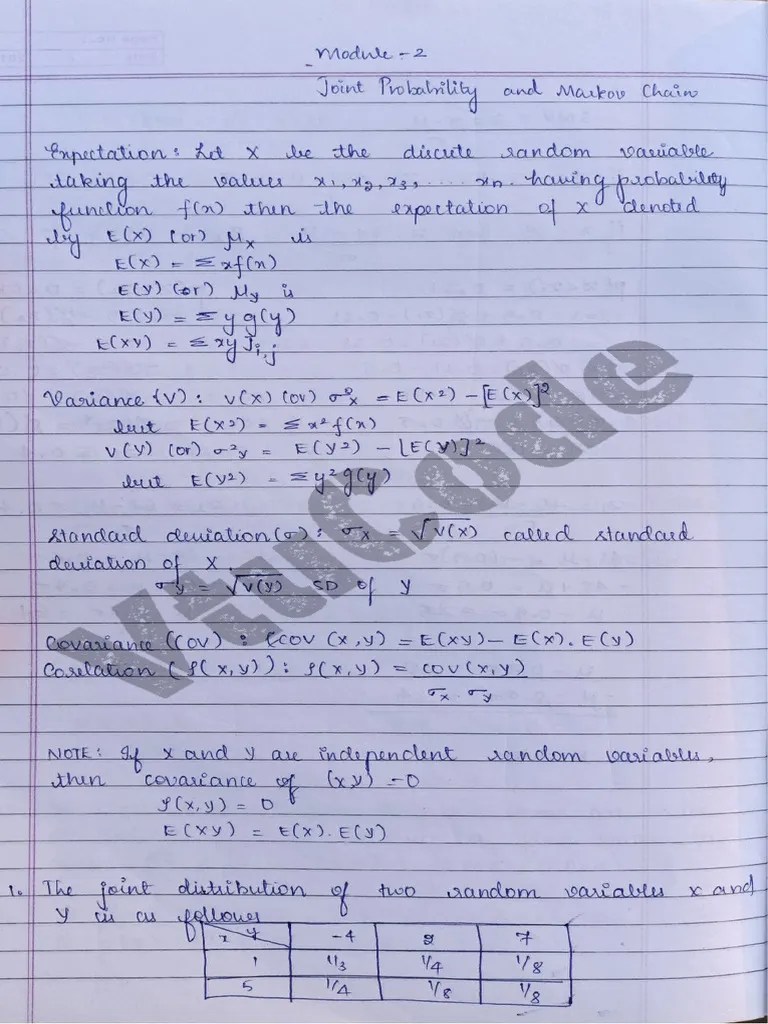 Module - 2
Joint Probability and Markov Chain
Expectation: Let X be the discute random variable
taking the values x1, x2, x3, ..... xn. having probability
function f(n) then the expectation of x denoted
by E(X) (or) μx is
E(X) = Σxf(n)
E(Y) (or) μy is
E(y) = Σ y g(y)
E(XY) = Σ xy Ji,j
Variance (V): V(X) (or) σ²x = E(X²) - [E(X)]²
but E(X²) = Σx² f(n)
V(Y) (or) σ²y = E(Y²) - [E(Y)]²
but E(Y²) = Σy² g(y)
Standard deviation(σ): σx = √V(X) called standard
deviation of X.
σy = √V(y) SD of Y
Covariance (COV) : (COV (x,y) = E(XY) - E(X). E(Y)
Corelation (ρ(x,y)): ρ(x,y) = COV(x,y)
σx σy
NOTE: If X and Y are independent random variables,
then covariance of (xy) = 0
ρ(x,y) = 0
E(XY) = E(X). E(Y)
1. The joint distribution of two random variables x and
Y is as follows
x Y -4 2 7
1 1/3 1/4 1/8
5 1/4 1/8 1/8
VtuCode